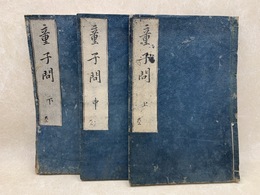 童子問 上
童子問 中
童子問 下